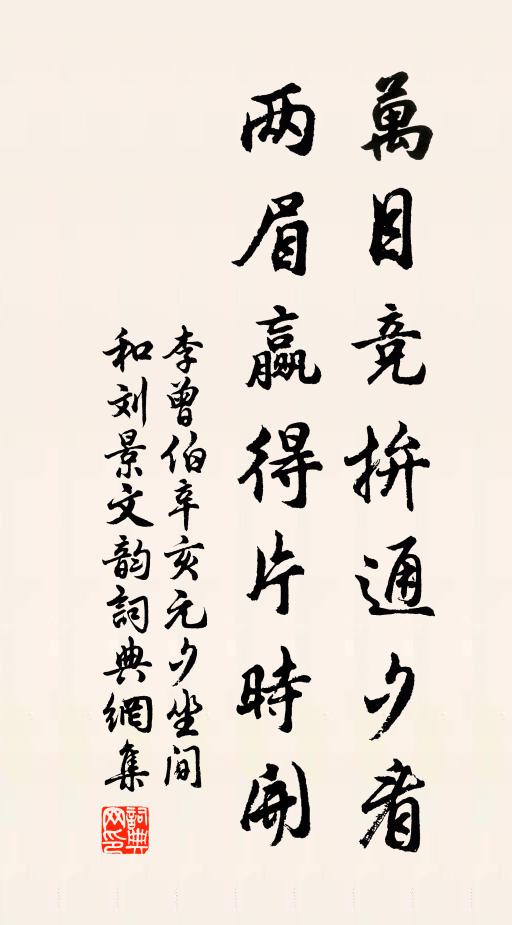 萬目竞拚通夕看
两眉贏得片時開
李曾伯辛亥元夕坐间
和刘景文韵詞典網集
詞典网印